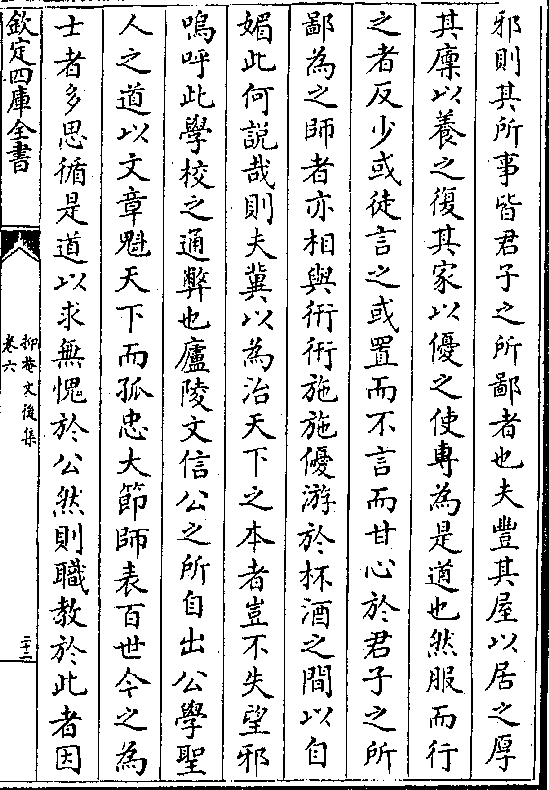 邪則其所事皆君子之所鄙者也夫豐其屋以居之厚
其廪以養之復其家以優之使專為是道也然服而行
之者反少或徒言之或置而不言而甘心於君子之所
鄙為之師者亦相與衎衎施施優游於杯酒之間以自
媚此何説哉則夫冀以為治天下之本者豈不失望邪
嗚呼此學校之通弊也廬陵文信公之所自出公學聖
人之道以文章魁天下而孤忠大節師表百世今之為
士者多思循是道以求無愧於公然則職教於此者因
欽定四庫全書
抑菴文後集
卷六